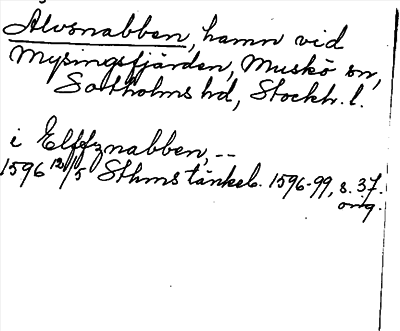 Alvsnabben, hamn vid
Mysingsfjärden, Muskö sn,
Sotholms hd, Stockh. l.
i Elffznabben, --
1596 12/5 Sthms tänkeb. 1596-99, s. 37.
orig.